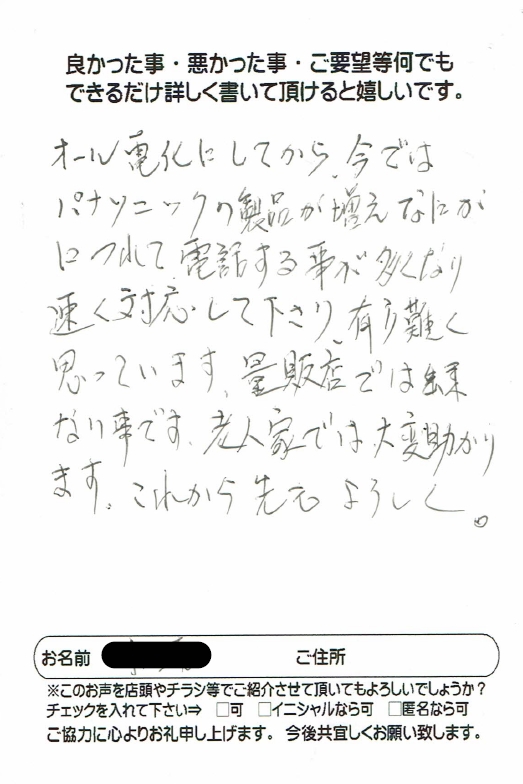 良かった事・悪かった事・ご要望等何でも
できるだけ詳しく書いて頂けると嬉しいです。
オール電化にしてから、今では
パナソニックの製品が増えなにか
につれて電話する事が多くなり
速く対応して下さり、有り難く
思っています、量販店では出来
ない事です、老人家では大変助かり
ます。これから先もよろしく。
お名前 ご住所
※このお声を店頭やチラシ等でご紹介させて頂いてもよろしいでしょうか？
チェックを入れて下さい⇒ □可 □イニシャルなら可 □匿名なら可
ご協力に心よりお礼申し上げます。 今後共宜しくお願い致します。